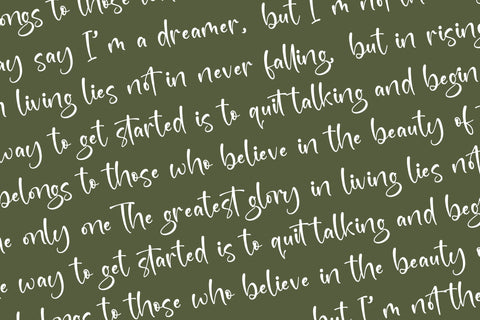 ongs to those
ay say I'm a dreamer, but I'm not th
living lies not in never falling, but in rising
way to get started is to quit talking and begin
belongs to those who believe in the beauty of
only one The greatest glory in living lies not
e way to get started is to quit talking and beg
ongs to those who believe in the beauty o
but I'm not the